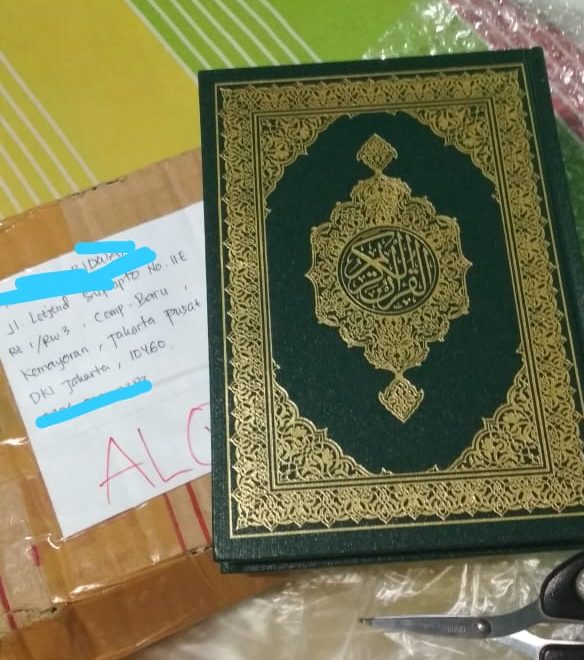 Jl. Letjend Suprapto No. 11E
Rt 1/RW 3, Comp. Baru,
Kemayoran, Jakarta Pusat
DKI Jakarta, 10460
ALQ
القرآن الكريم